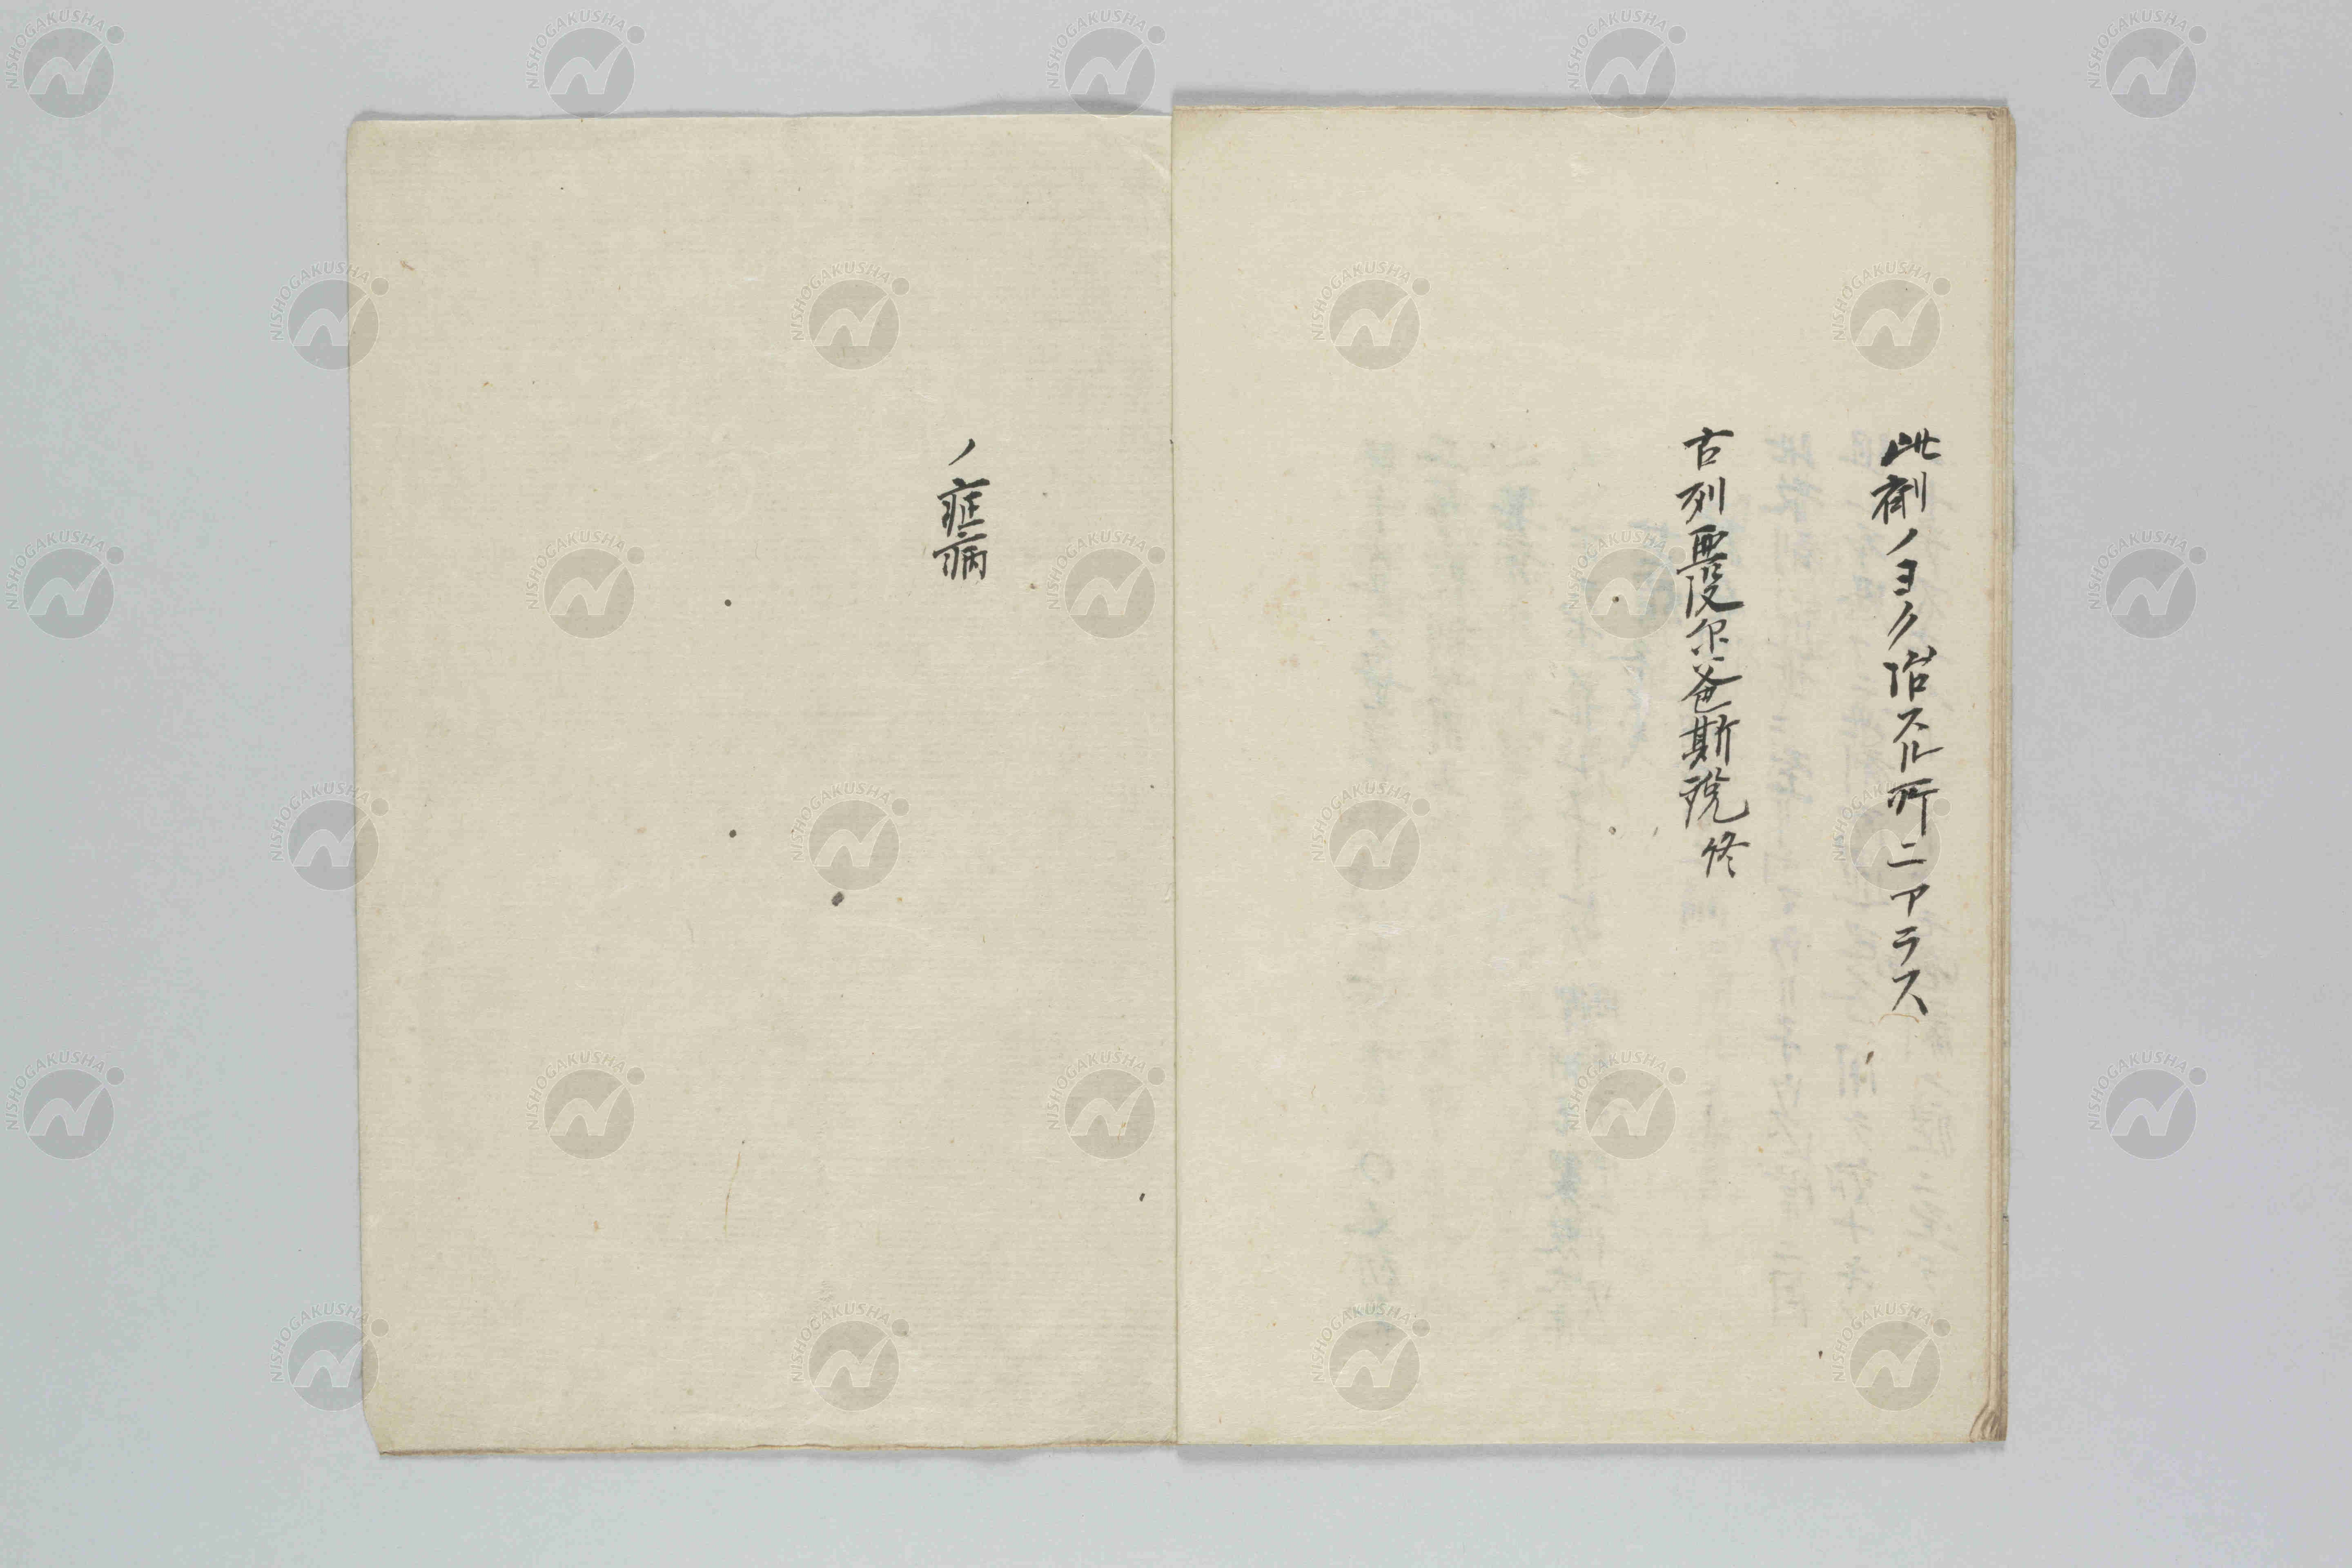 此剤ノヨク治スル所ニアラス
古列亜没尔爸斯説終
ノ症病
NISHOGAKUSHA